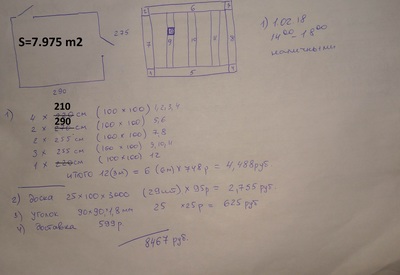 S=7.975 m2
275
290
2 6 3
7 9 10 11 8
1 5 4
1) 1.02.18
14 00 - 18 00
наличными
1)
210
4 x 220 см (100 x 100) 1,2,3,4
290
2 x см (100 x 100) 5,6
2 x 255 см (100 x 100) 7,8
3 x 255 см (100 x 100) 9,10,11
1 x 220 см (100 x 100) 12
итого 12(3м) = 6 (6м) x 748 р = 4,488 руб
2) Доска 25x100x3000 (29шт) x 95р = 2,755 руб
3) уголок 90x90x1,8мм 25 x25р = 625 руб
4) доставка 599р
8467 руб.